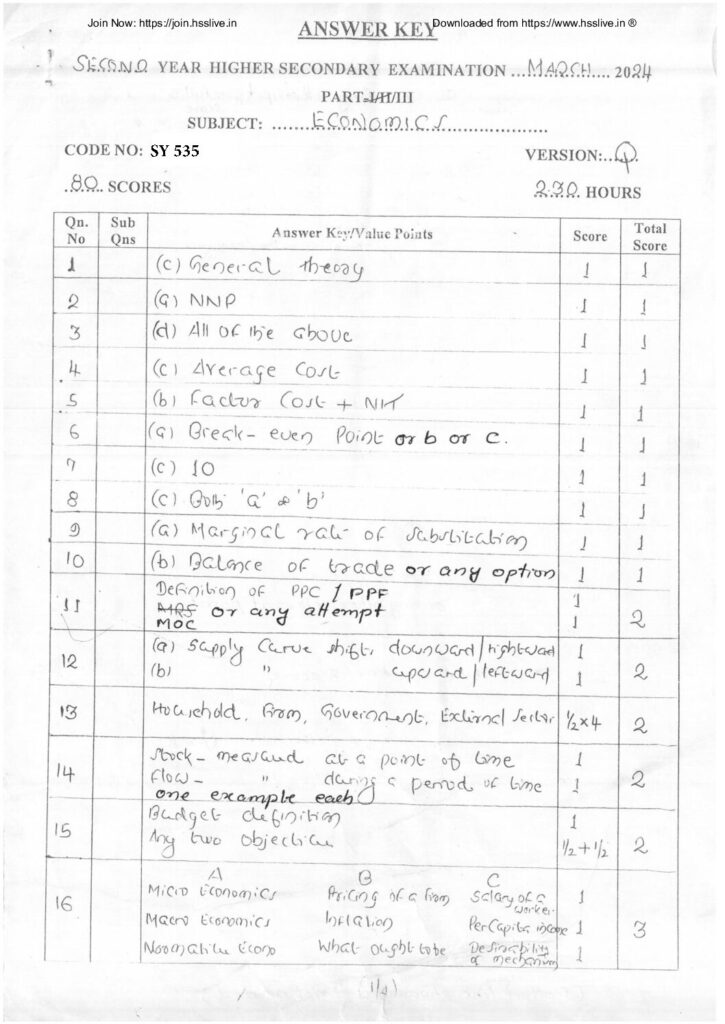 Join Now: https://join.hsslive.in Downloaded from https://www.hsslive.in ®
ANSWER KEY
SECOND YEAR HIGHER SECONDARY EXAMINATION ...MARCH.... 2024
PART-I/II/III
SUBJECT: .......ECONOMICS.....................
CODE NO: SY 535 VERSION:..Q.
.80.. SCORES 2.30. HOURS
Qn. No Sub Qns Answer Key/Value Points Score Total Score
1 (c) General theory 1 1
2 (a) NNP 1 1
3 (d) All of the above 1 1
4 (c) Average Cost 1 1
5 (b) Factor Cost + NIT 1 1
6 (a) Break-even Point or b or c. 1 1
7 (c) 10 1 1
8 (c) Both 'a' & 'b' 1 1
9 (a) Marginal rate of substitution 1 1
10 (b) Balance of trade or any option 1 1
11 Definition of PPC / PPF 1
MRS or any attempt
MOC 1 2
12 (a) Supply Curve shifts downward/rightward 1
(b) " upward/leftward 1 2
13 Household, Firm, Government, External Sector ½×4 2
14 Stock - measured at a point of time 1
Flow - " during a period of time 1 2
one example each
15 Budget definition 1
Any two objective ½+½ 2
A B C
16 Micro Economics Pricing of a firm Salary of a worker 1
Macro Economics Inflation Per Capita income 1 3
Normative Econo What ought to be Desirability of mechanism 1
(1/4)